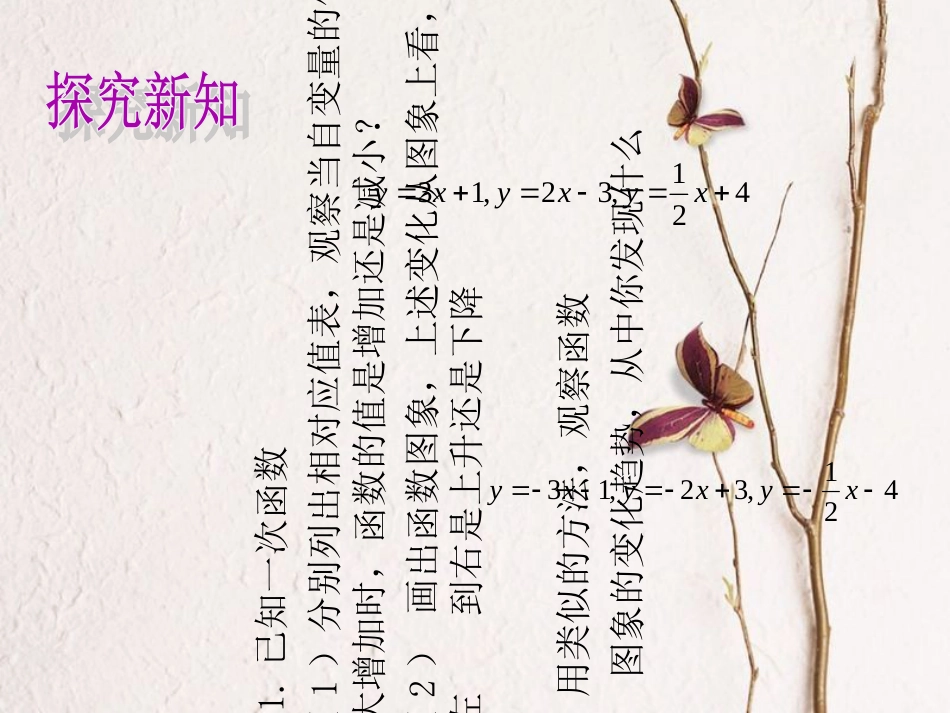 探究新知
1.已知一次函数
1)分别列出相对应值表,观察当自变量的
大增加时,函数的值是增加还是减小?
2) 画出函数图象,上述变化从图象上看,
左
到右是上升还是下降
y=3x+1,y=2x-3,y=1/2x+4
用类似的方法,观察函数
图象的变化趋势,从中你发现什么
y=-3x-1,y=-2x+3,y=-1/2x-4